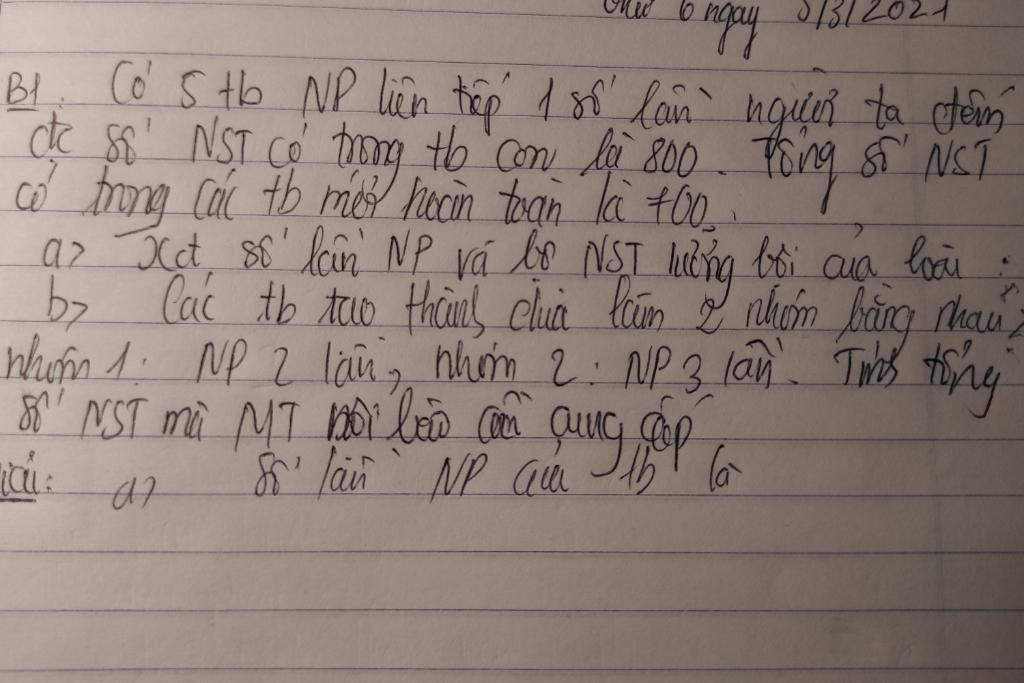 thứ 6 ngày 5/3/2021
B1. Có 5 tb NP liên tiếp 1 số lần người ta đếm
đc số NST có trong tb con là 800. Tổng số NST
có trong các tb mới hoàn toàn là 700.
a> Xđ số lần NP và bộ NST lưỡng bội của loài.
b> Các tb tạo thành chia làm 2 nhóm bằng nhau;
nhóm 1: NP 2 lần, nhóm 2: NP 3 lần. Tính tổng
số NST mà MT nội bào cần cung cấp
iải: a> Số lần NP của tb là